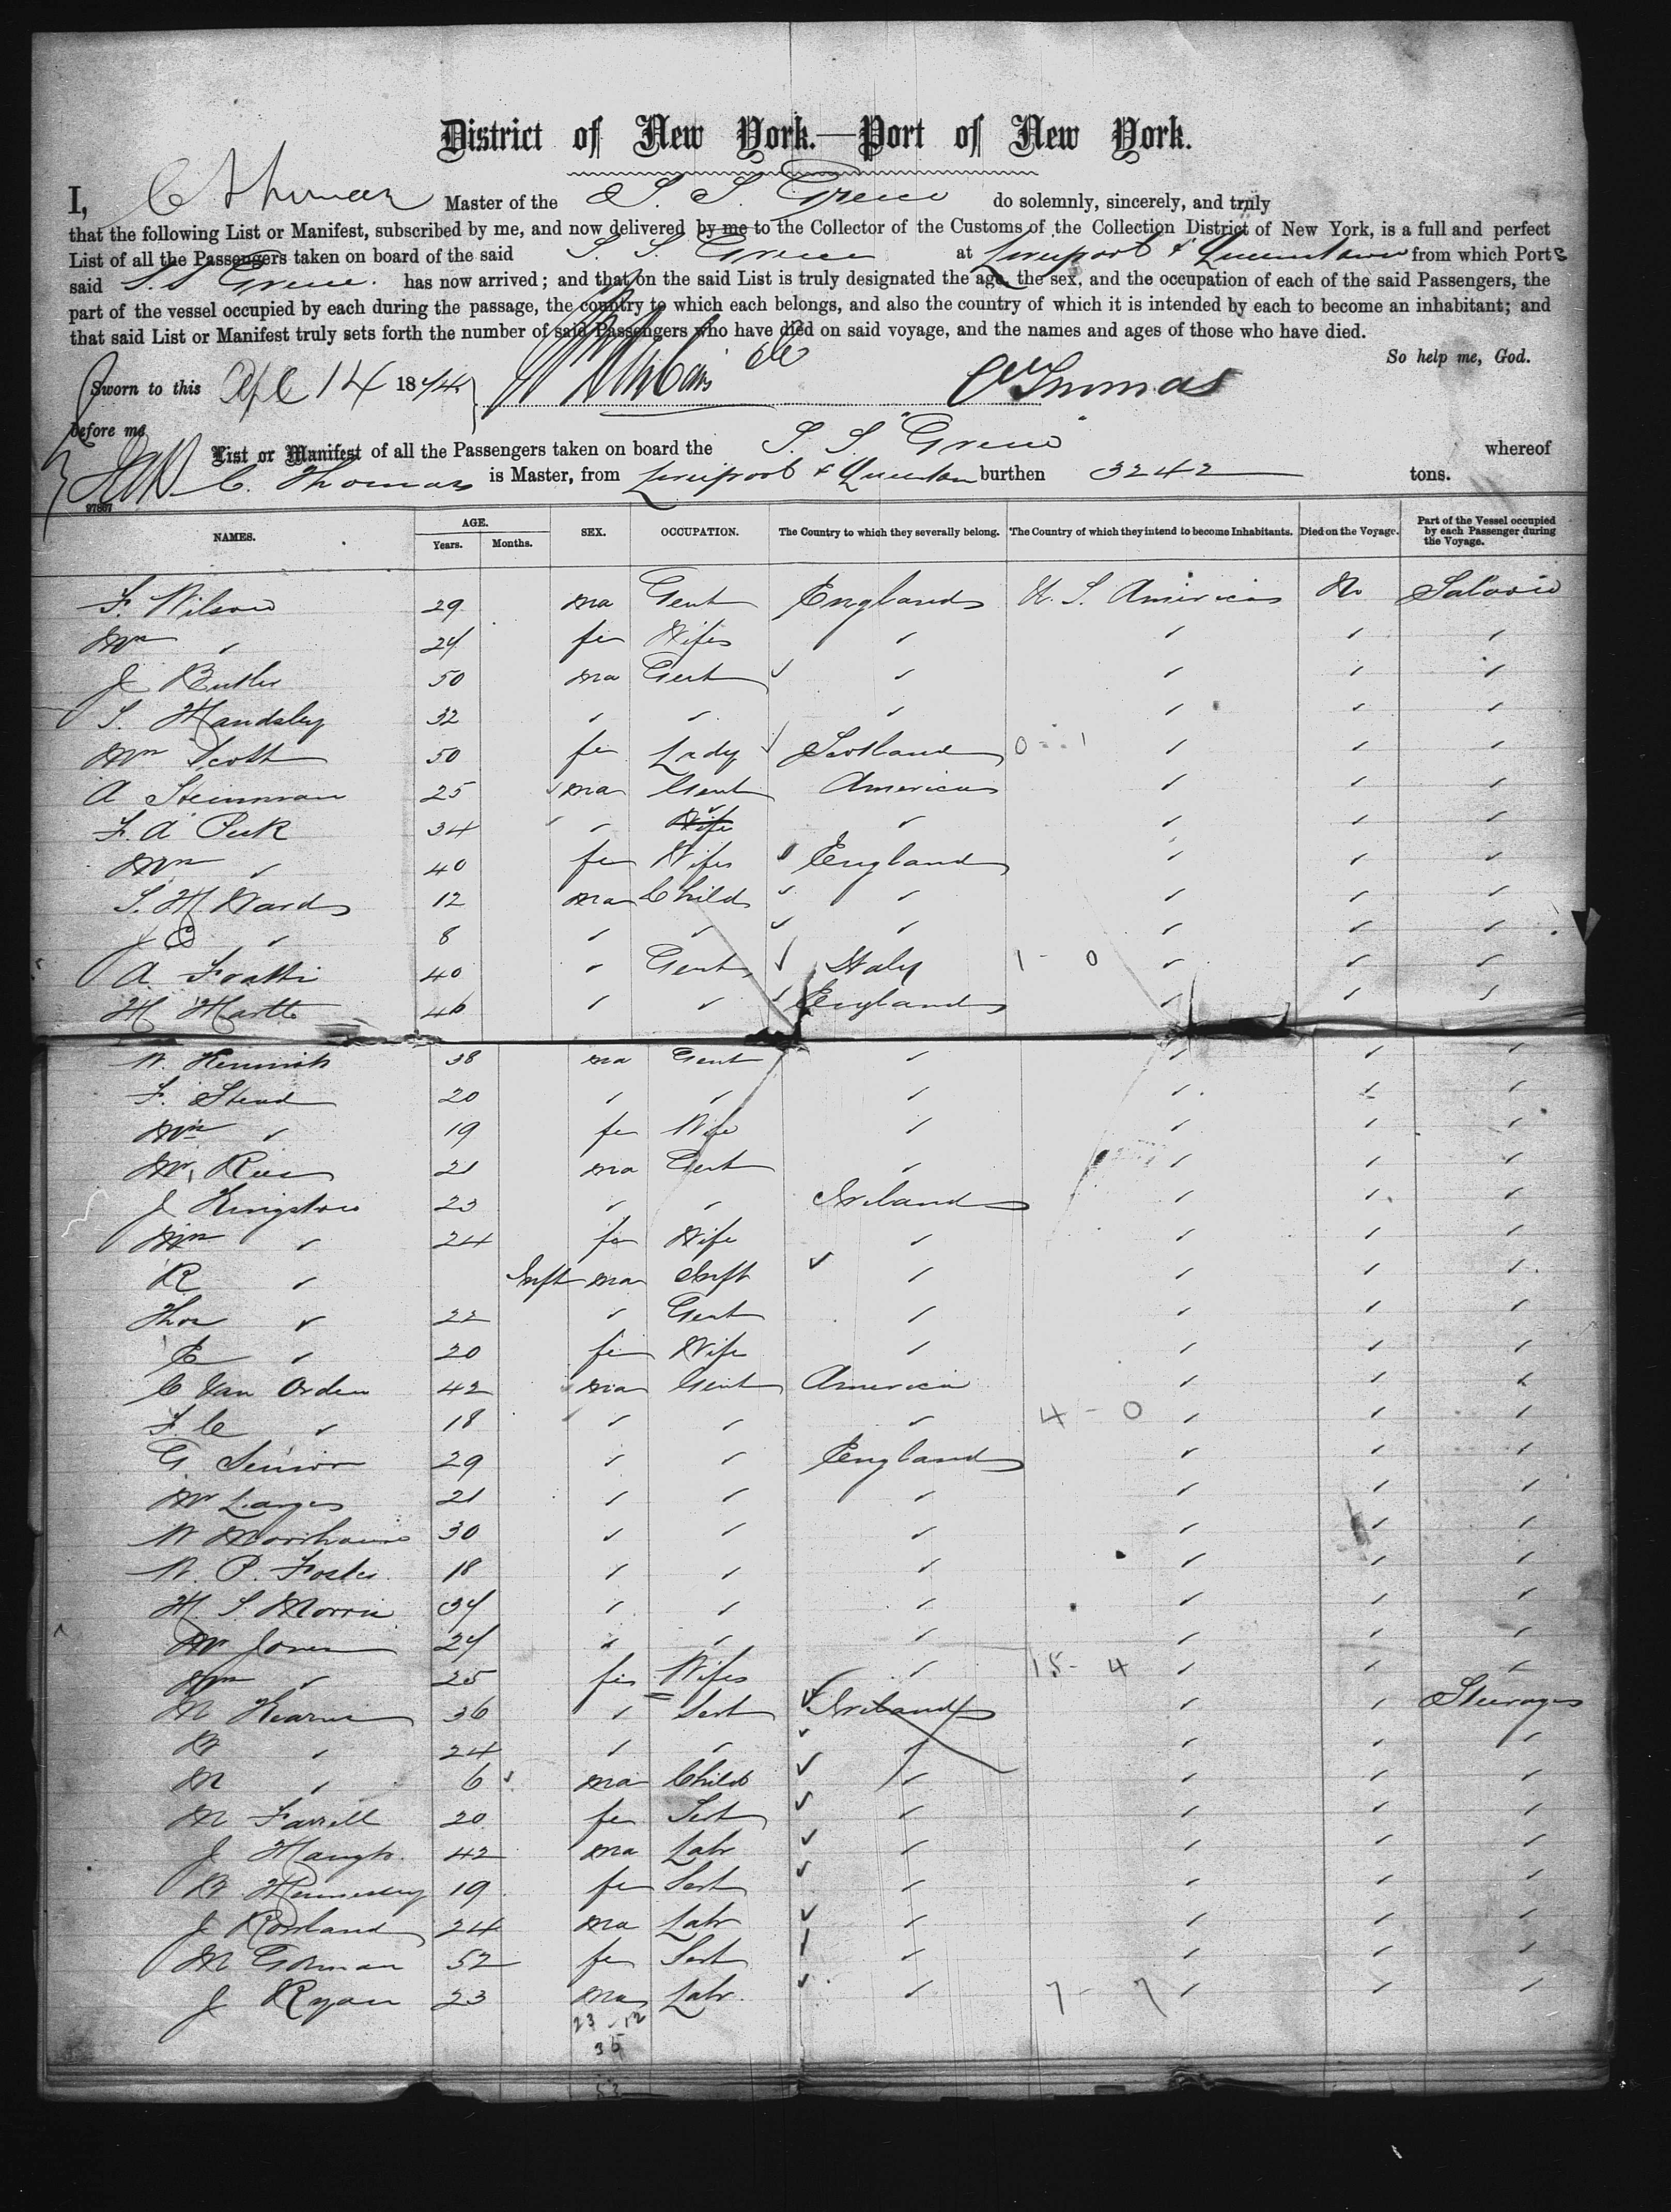 District of New York.—Port of New York.
I, C Thomas Master of the S. S. Greece do solemnly, sincerely, and truly
that the following List or Manifest, subscribed by me, and now delivered by me to the Collector of the Customs of the Collection District of New York, is a full and perfect
List of all the Passengers taken on board of the said S. S. Greece at Liverpool & Queenstown from which Port s
said S.S Greece. has now arrived; and that on the said List is truly designated the age, the sex, and the occupation of each of the said Passengers, the
part of the vessel occupied by each during the passage, the country to which each belongs, and also the country of which it is intended by each to become an inhabitant; and
that said List or Manifest truly sets forth the number of said Passengers who have died on said voyage, and the names and ages of those who have died.
So help me, God.
Sworn to this Apl 14 1874 Thomas
before me
List or Manifest of all the Passengers taken on board the S. S. "Greece" whereof
C. Thomas is Master, from Liverpool & Queenstown burthen 3242 tons.
97867
NAMES. AGE. Years. Months. SEX. OCCUPATION. The Country to which they severally belong. The Country of which they intend to become Inhabitants. Died on the Voyage. Part of the Vessel occupied by each Passenger during the Voyage.
F. Wilson 29 ma Gent England U. S. America No Saloon
Mrs " 24 fe Wife " " " "
J Butler 50 ma Gent " " " "
S. Mandsley 32 " " " " " "
Mrs Scott 50 fe Lady Scotland 0 - 1 " " "
A Steinman 25 ma Gent America " " "
F. A Peck 34 " Wife " " " "
Mrs " 40 fe Wife England " " "
S. H. Ward 12 ma Child " " " "
J C " 8 " " " " " "
A. Fratti 40 " Gent Italy 1 - 0 " " "
H Hartt 40 " " England " " "
W. Hemmick 38 ma Gent " " " "
F. Stead 20 " " " " " "
Mrs " 19 fe Wife " " " "
Mr, Rees 21 ma Gent " " " "
J Kingston 23 " " Ireland " " "
Mrs " 24 fe Wife " " " "
R " Inft ma Inft " " " "
Thos " 22 " Gent " " " "
E " 20 fe Wife " " " "
C Van Orden 42 ma Gent America " " "
F. C " 18 " " " 4 - 0 " " "
G Senior 29 " " England " " "
Mr Langes 21 " " " " " "
W Moorhouse 30 " " " " " "
W. P. Foster 18 " " " " " "
H. S. Morris 34 " " " " " "
Mr Jones 24 " " " " " "
Mrs " 25 fe Wife " 15 - 4 " " "
M Hearne 36 " Sert Ireland " " Steerage
B " 24 " " " " " "
M " 6 ma Child " " " "
M Farrell 20 fe Sert " " " "
J Haugh 42 ma Labr " " " "
B Hennesey 19 fe Sert " " " "
J Rowland 24 ma Labr " " " "
M Gorman 52 fe Sert " " " "
J Ryan 23 ma Labr. " 7 - 7 " " "
23 - 12
35
53